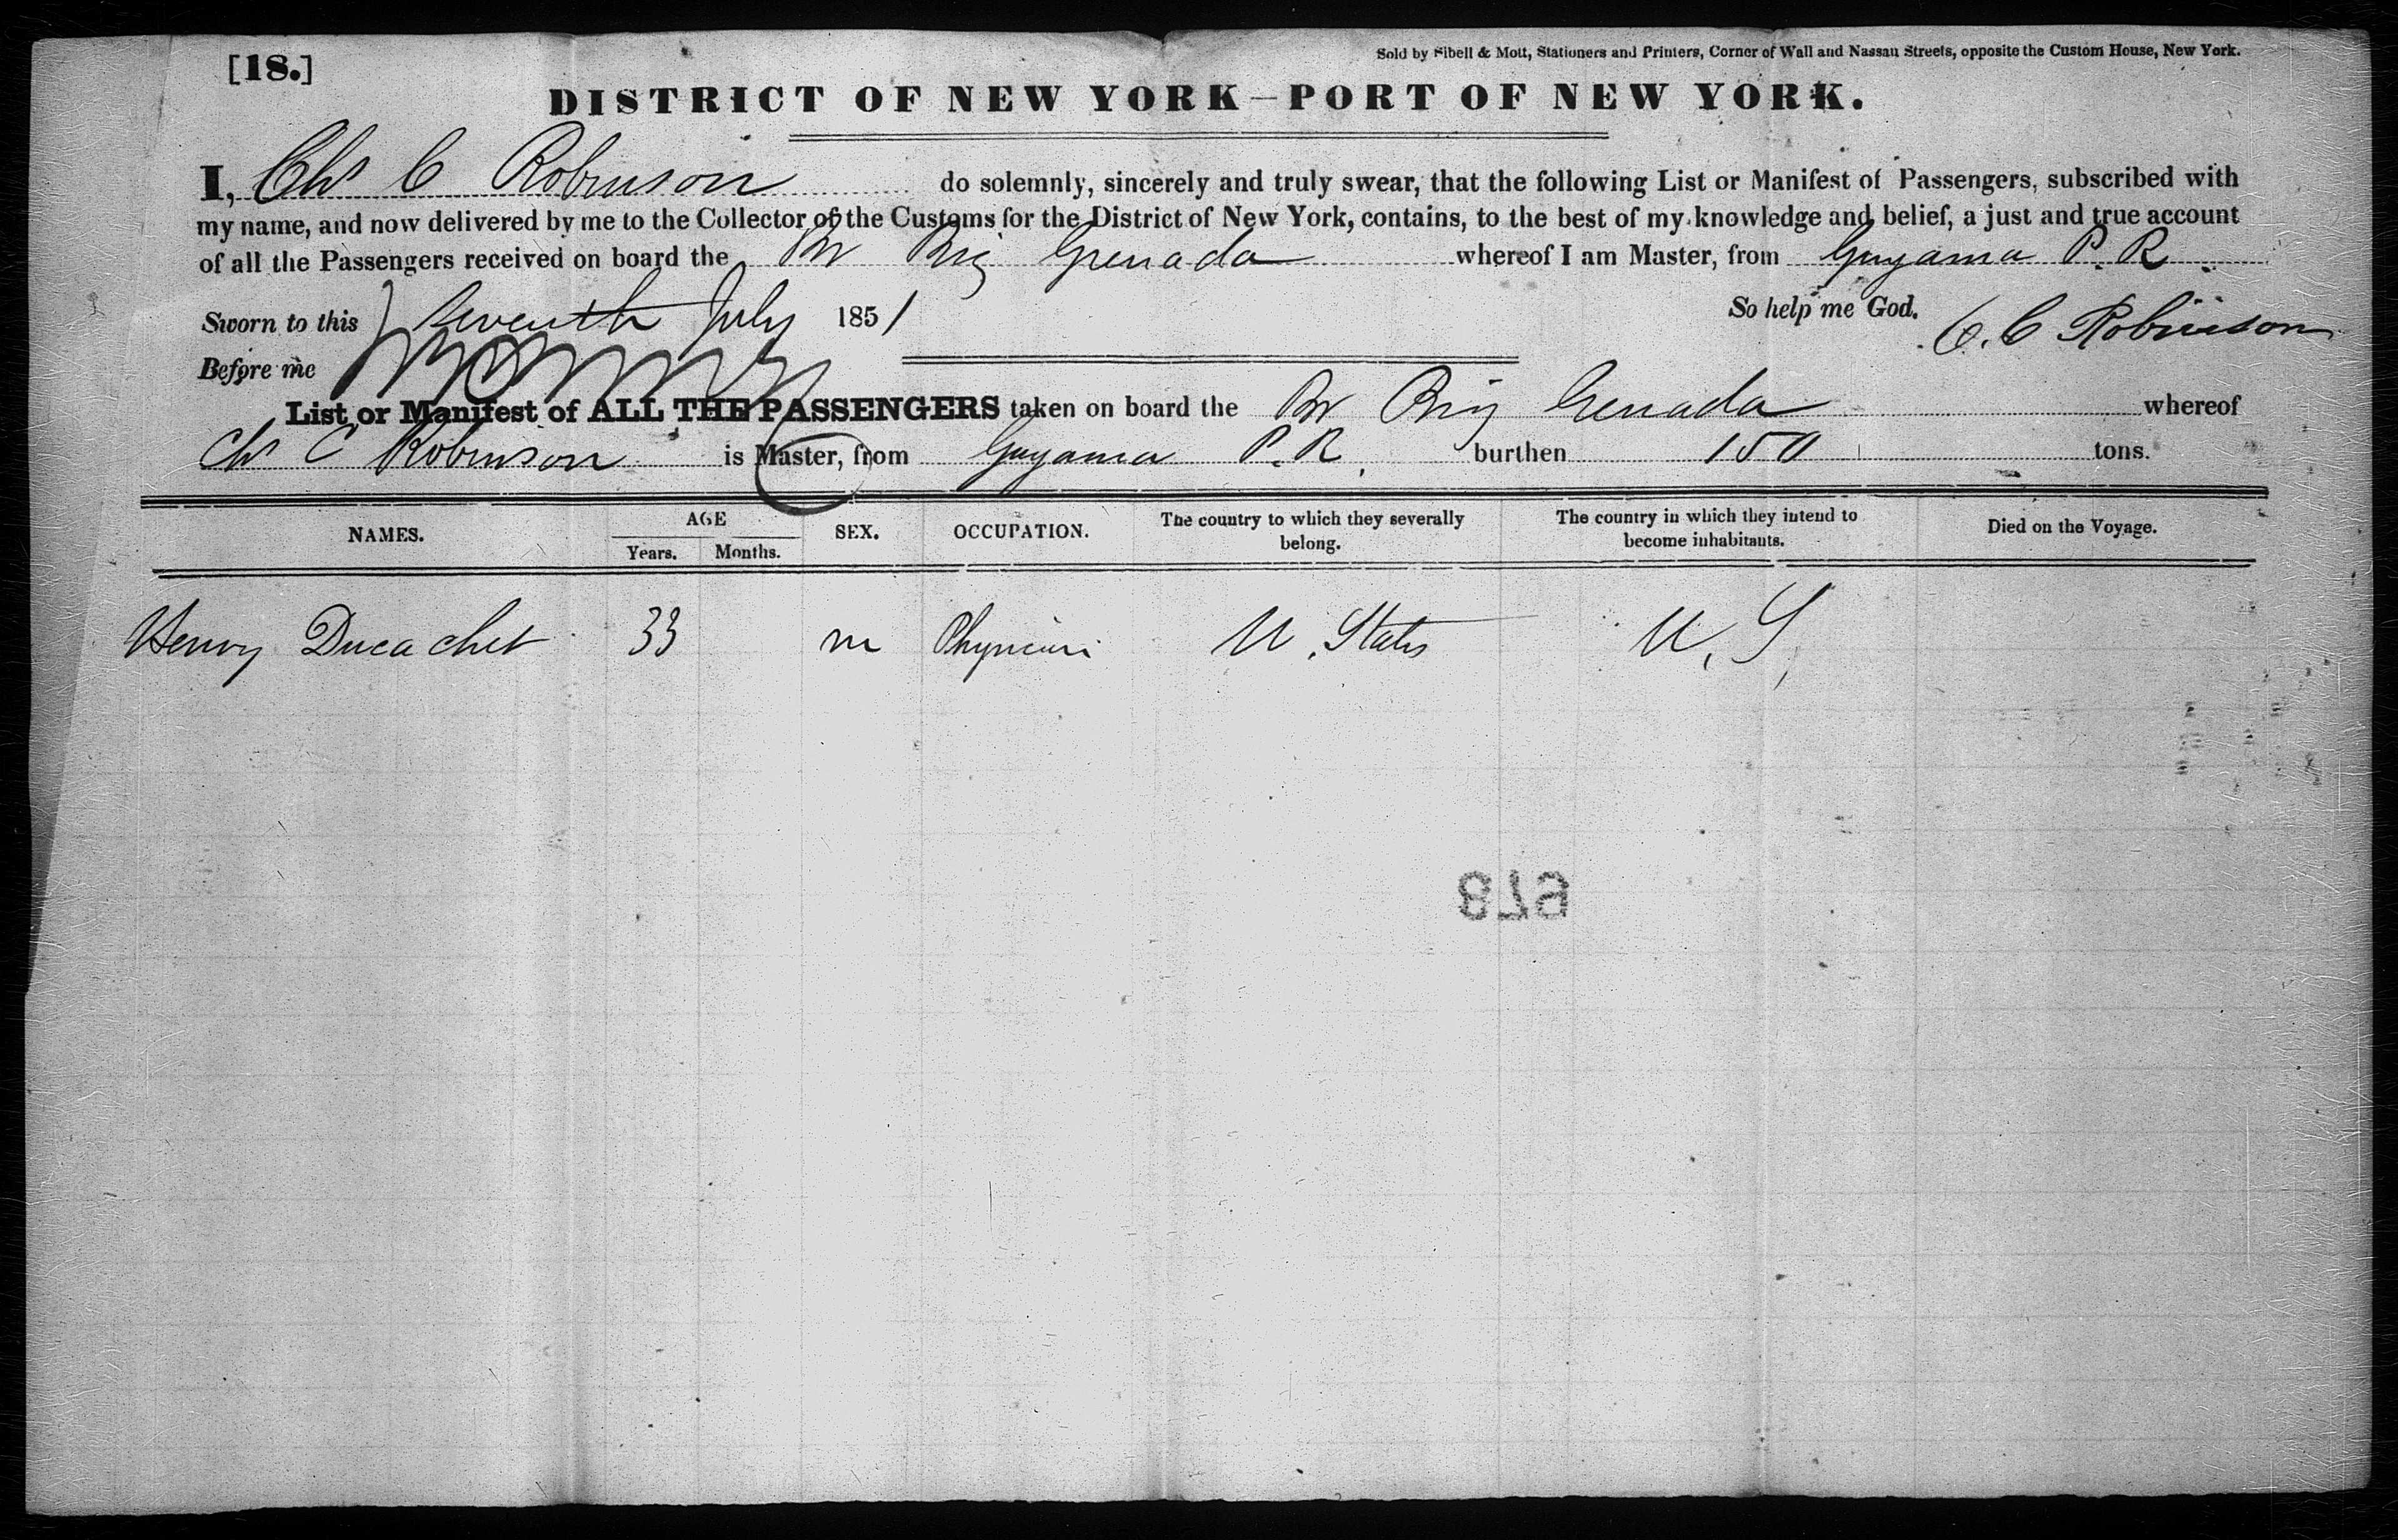 [18.]
Sold by Sibell & Mott, Stationers and Printers, Corner of Wall and Nassau Streets, opposite the Custom House, New York.
DISTRICT OF NEW YORK—PORT OF NEW YORK.
I, Chs C Robinson do solemnly, sincerely and truly swear, that the following List or Manifest of Passengers, subscribed with
my name, and now delivered by me to the Collector of the Customs for the District of New York, contains, to the best of my knowledge and belief, a just and true account
of all the Passengers received on board the Br Brig Grenada whereof I am Master, from Guyama P. R
Sworn to this seventh July 1851 So help me God. C. C Robinson
Before me
List or Manifest of ALL THE PASSENGERS taken on board the Br Brig Grenada whereof
Chs C Robinson is Master, from Guyama P. R. burthen 150 tons.
NAMES. AGE SEX. OCCUPATION. The country to which they severally belong. The country in which they intend to become inhabitants. Died on the Voyage.
Years. Months.
Henry Ducachet 33 m Physician U. States U. S,
678